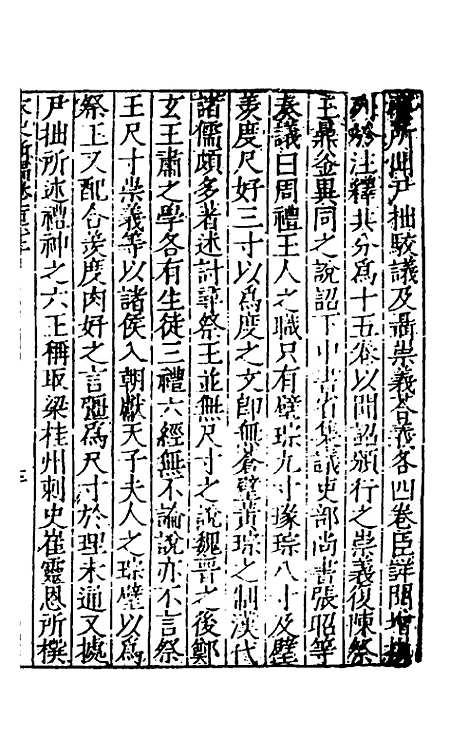 所出尹拙駁議及聶崇義答義各四卷臣詳閱增損
列於注釋共分爲十五卷以聞詔頒行之崇義復陳祭
玉鼎釜異同之說詔下中書省集議吏部尚書張昭等
奏議曰周禮玉人之職只有璧琮九寸瑑琮八寸及璧
羨度尺好三寸以爲度之文即無蒼璧黃琮之制漢代
諸儒頗多著述討尋祭玉並無尺寸之說魏晉之後鄭
玄王肅之學各有生徒三禮六經無不論說亦不言祭
玉尺寸崇義等以諸侯入朝獻天子夫人之琮璧以爲
祭玉又配合羨度肉好之言彊爲尺寸於理未通又據
尹拙所述禮神之六玉稱取梁桂州刺史崔靈恩所撰